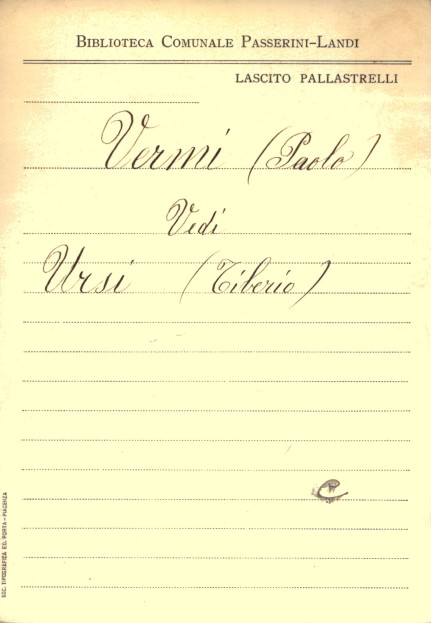 BIBLIOTECA COMUNALE PASSERINI-LANDI
LASCITO PALLASTRELLI
Vermi (Paolo)
Vedi
Ursi (Tiberio)
C
SOC. TIPOGRAFICA ED. PORTA - PIACENZA